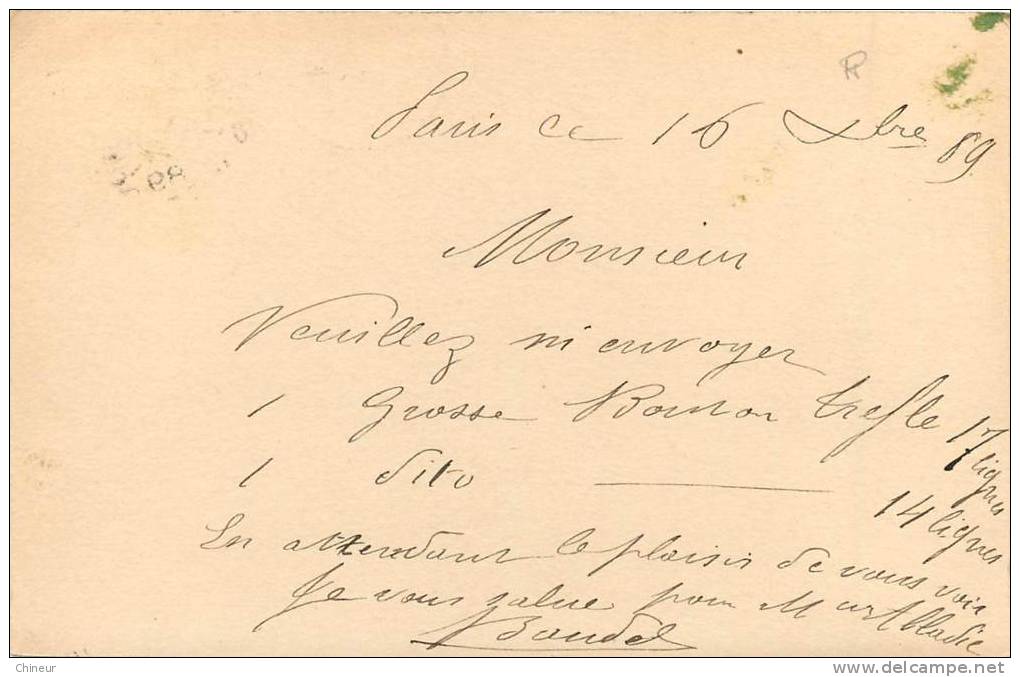 Paris ce 16 Xbre 89
Monsieur
Veuillez m'envoyer
1 Grosse Bouton trefle 17 lignes
1 dito 14 lignes
En attendant le plaisir de vous voir
Je vous salue pour Mr Abbadie
Chineur
delcampe.net